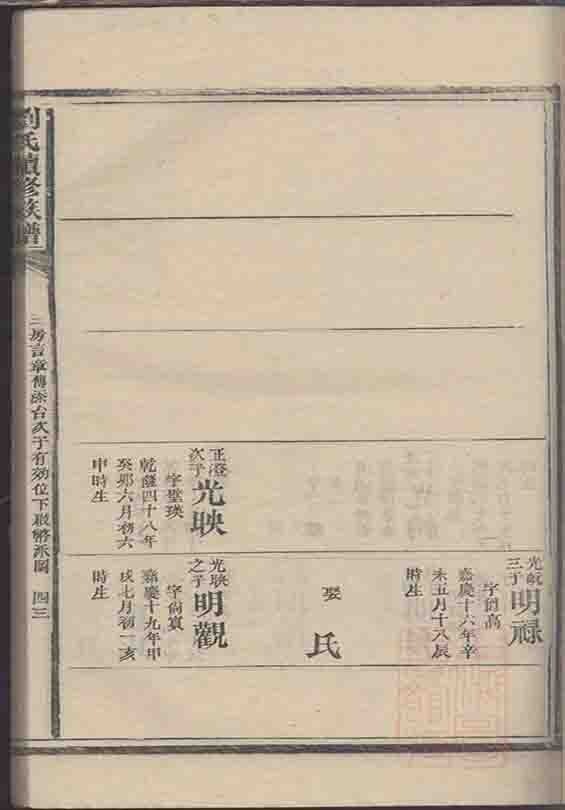 劉氏續修族譜
三房言章傳添台次子有効位下啟膺派圖 四三
正澄次子光映
字聖瑛
乾隆四十八年
癸卯六月初六
申時生
三子明祿
字尚高
嘉慶十六年辛
未五月十八辰
時生
娶 氏
光映之子明觀
字尚賓
嘉慶十九年甲
戌七月初一亥
時生